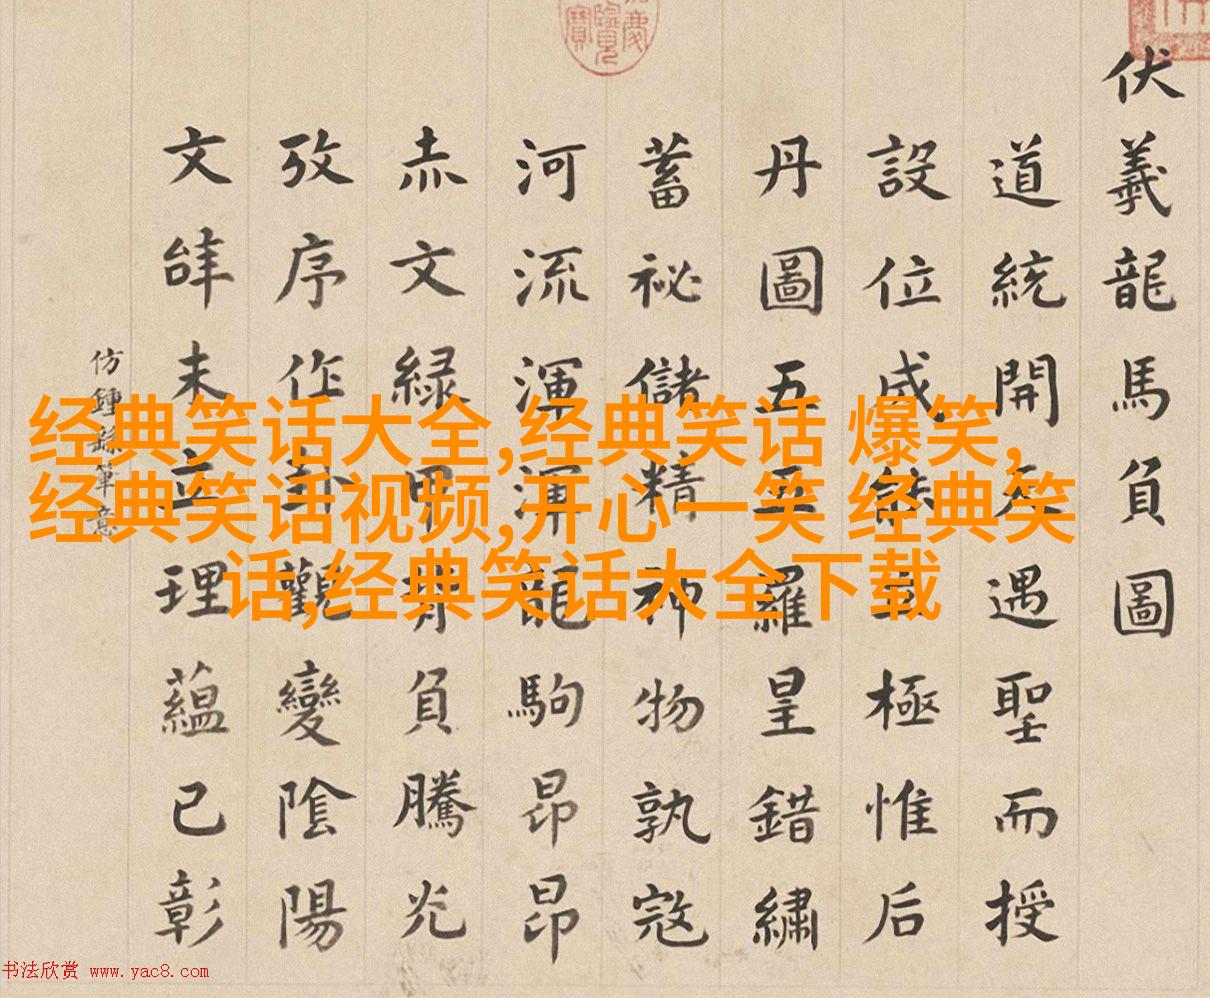 伏羲龍馬負圖
道統開天遇聖而授
設位成能極惟后
丹圖五五羅星錯繡
蓄祕儲精神物孰寇
河流渾渾龍駒昂昂
赤文緑甲背負騰光
攷序作卦觀變陰陽
文辝未立理蘊已彰
仿鍾繇筆意
经典笑话大全,经典笑话 爆笑,
经典笑话视频,开心一笑 经典笑
话,经典笑话大全下载
书法欣赏 www.yac8.com